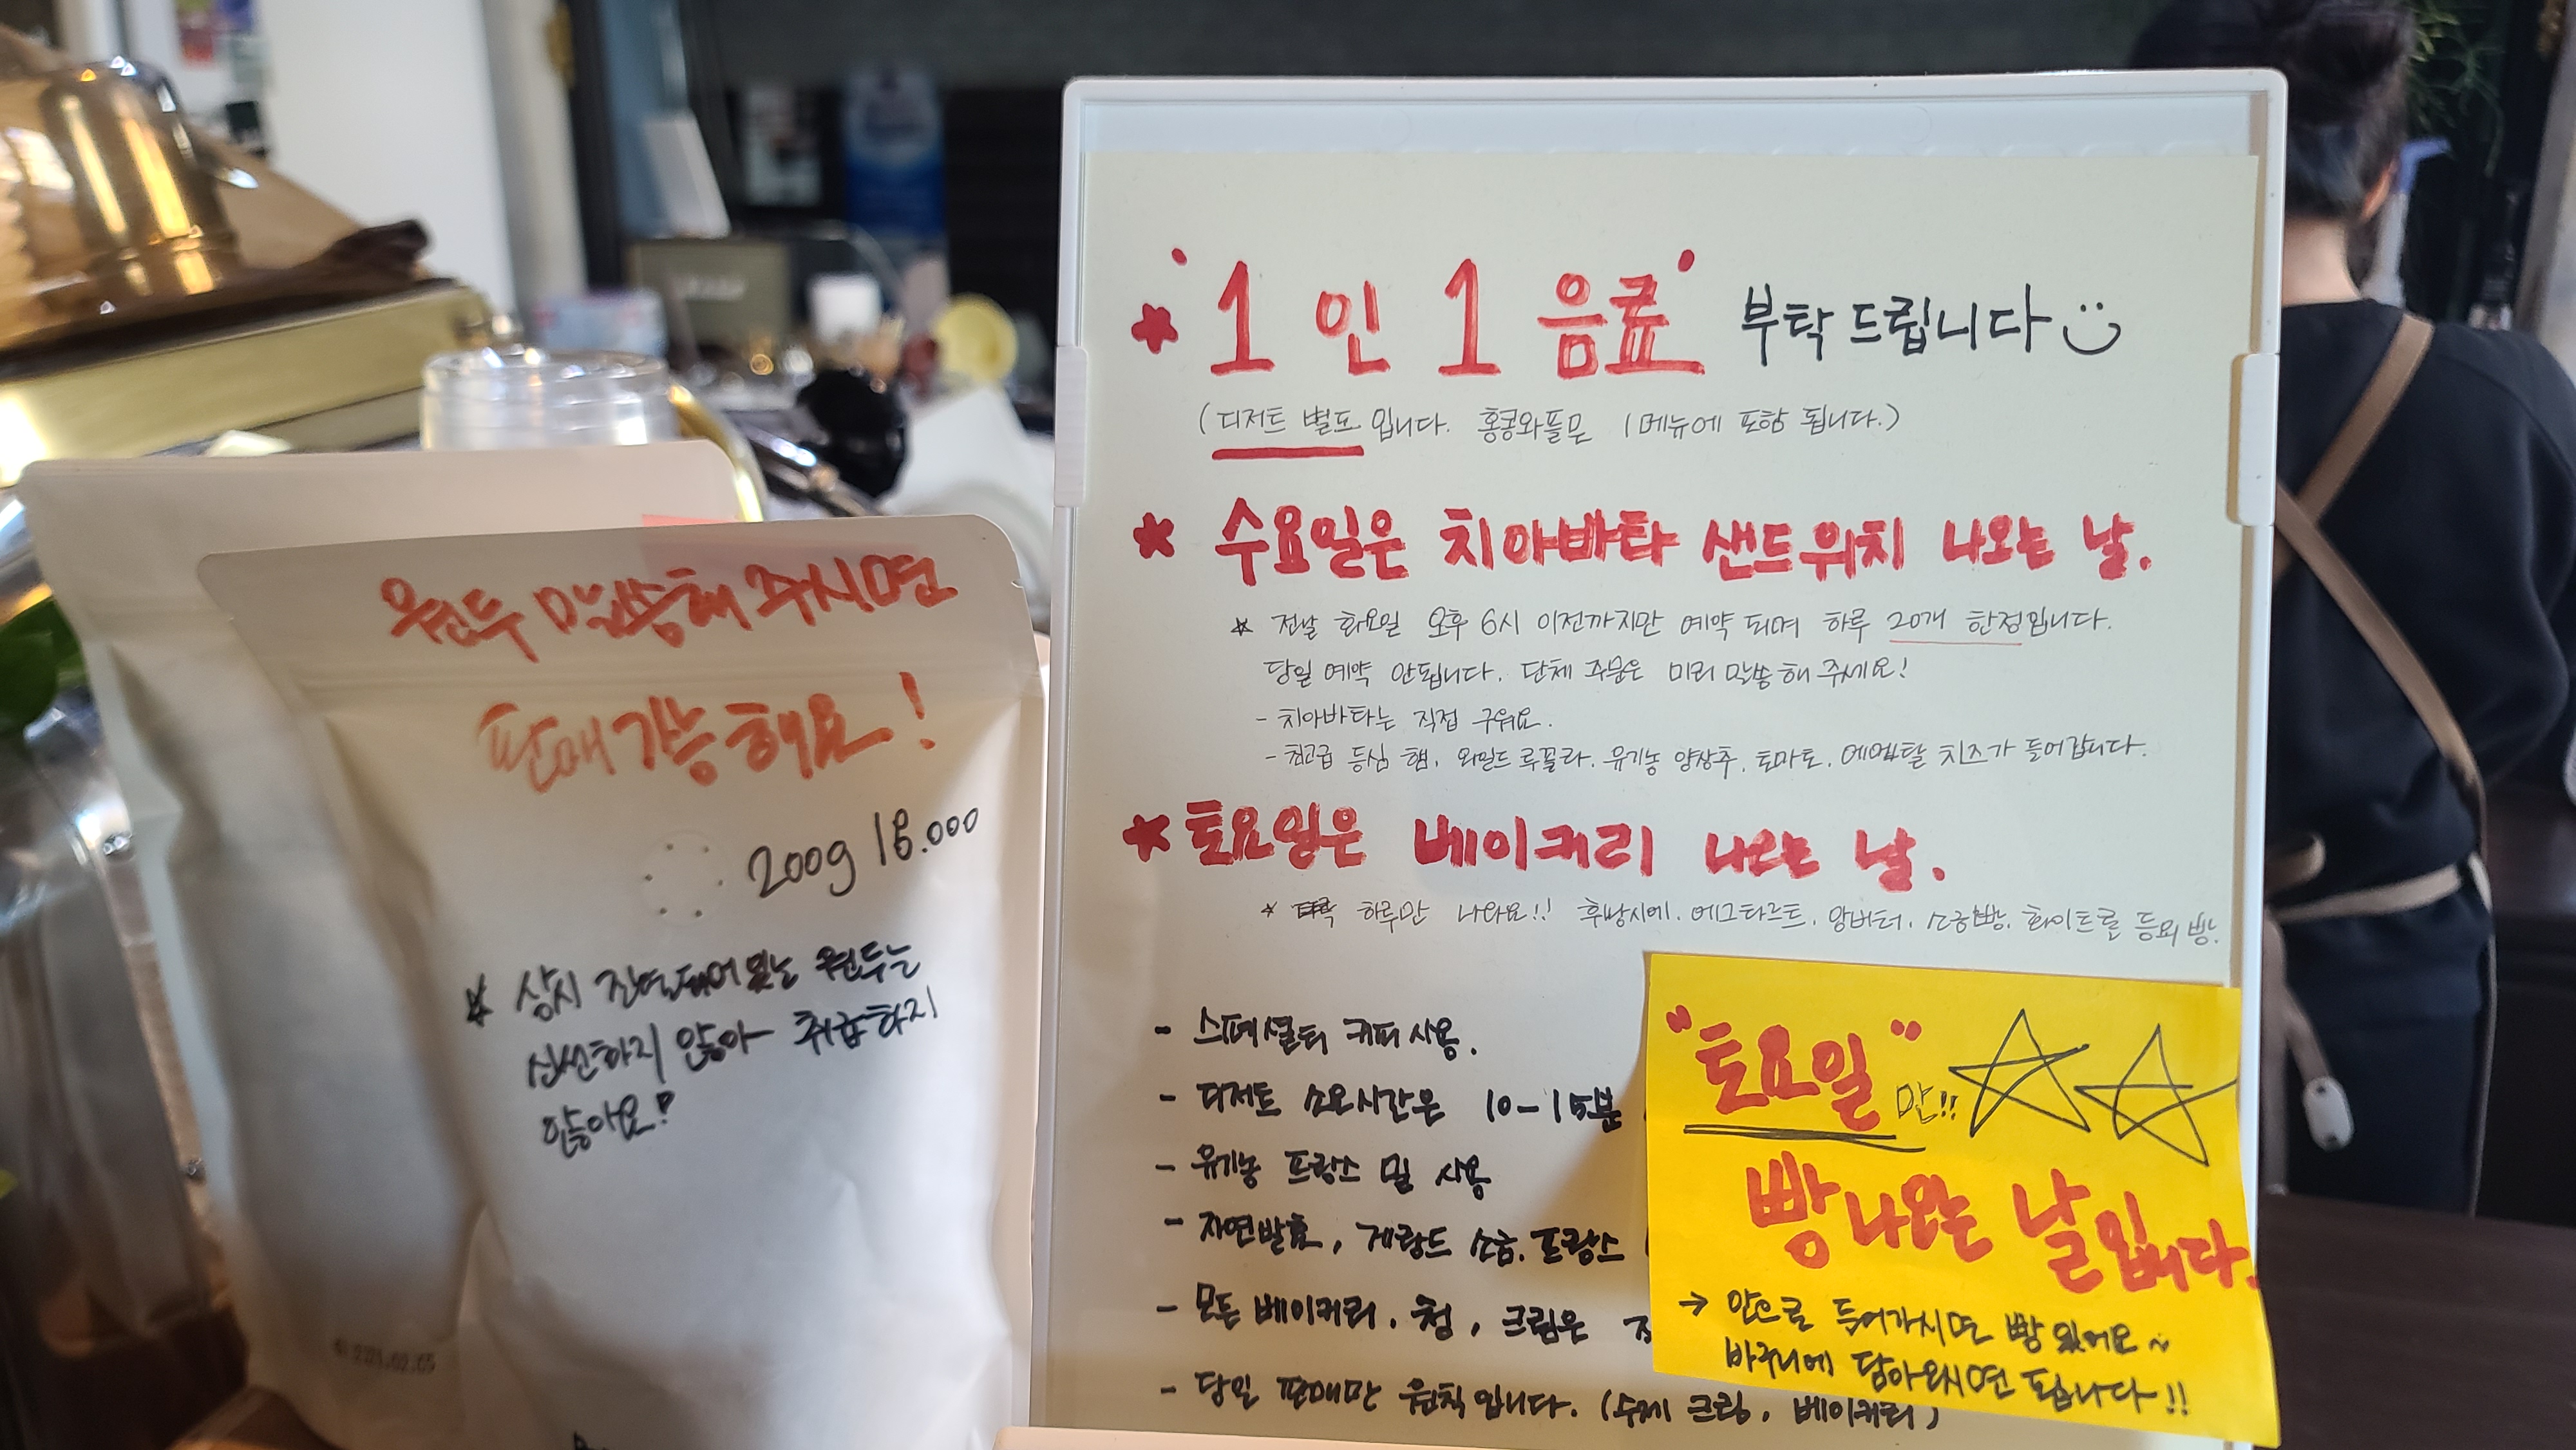 원두 말씀해 주시면
판매가능해요!
200g 18.000
* 상시 진열되어 있는 원두는
신선하지 않아 취급하지
않아요!
* "1인 1음료" 부탁드립니다
(디저트 별도 입니다. 홍콩와플은 1메뉴에 포함 됩니다.)
* 수요일은 치아바타 샌드위치 나오는 날.
* 전날 화요일 오후 6시 이전까지만 예약 되며 하루 20개 한정입니다.
당일 예약 안됩니다. 단체 주문은 미리 말씀해 주세요!
- 치아바타는 직접 구워요.
- 최고급 등심 햄, 와일드 루꼴라, 유기농 양상추, 토마토, 에멘탈 치즈가 들어갑니다.
* 토요일은 베이커리 나오는 날.
* 하루만 나와요!! 후방시에, 에그타르트, 앙버터, 소금빵, 화이트롤 등의 빵.
- 스페셜티 커피 사용.
- 디저트 소요시간은 10-15분
- 유기농 프랑스 밀 사용
- 자연발효, 게랑드 소금, 프랑스
- 모든 베이커리, 청, 크림은
- 당일 판매만 원칙입니다. (수제 크림, 베이커리)
"토요일" 만!!
빵 나오는 날입니다.
→ 안으로 들어가시면 빵 있어요~
바구니에 담아오시면 됩니다!!